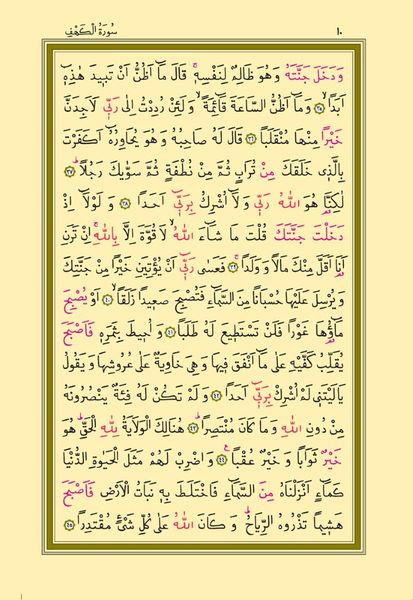 سُورَةُ الْكَهْفِ
١٠
وَدَخَلَ جَنَّتَهُ وَهُوَ ظَالِمٌ لِنَفْسِهِۚ قَالَ مَٓا اَظُنُّ اَنْ تَب۪يدَ هٰذِه۪ٓ
اَبَداًۙ ﴿٣٥﴾ وَمَٓا اَظُنُّ السَّاعَةَ قَٓائِمَةًۙ وَلَئِنْ رُدِدْتُ اِلٰى رَبّ۪ي لَاَجِدَنَّ
خَيْراً مِنْهَا مُنْقَلَباً ﴿٣٦﴾ قَالَ لَهُ صَاحِبُهُ وَهُوَ يُحَاوِرُهُٓ اَكَفَرْتَ
بِالَّذ۪ي خَلَقَكَ مِنْ تُرَابٍ ثُمَّ مِنْ نُطْفَةٍ ثُمَّ سَوّٰيكَ رَجُلاًۜ ﴿٣٧﴾
لٰكِنَّا۬ هُوَ اللّٰهُ رَبّ۪ي وَلَٓا اُشْرِكُ بِرَبّ۪ٓي اَحَداً ﴿٣٨﴾ وَلَوْلَٓا اِذْ
دَخَلْتَ جَنَّتَكَ قُلْتَ مَا شَٓاءَ اللّٰهُۙ لَا قُوَّةَ اِلَّا بِاللّٰهِۚ اِنْ تَرَنِ
اَنَا۬ اَقَلَّ مِنْكَ مَالاً وَوَلَداًۚ ﴿٣٩﴾ فَعَسٰى رَبّ۪ٓي اَنْ يُؤْتِيَنِ خَيْراً مِنْ جَنَّتِكَ
وَيُرْسِلَ عَلَيْهَا حُسْبَاناً مِنَ السَّمَٓاءِ فَتُصْبِحَ صَع۪يداً زَلَقاًۙ ﴿٤٠﴾ اَوْ يُصْبِحَ
مَٓاؤُ۬هَا غَوْراً فَلَنْ تَسْتَط۪يعَ لَهُ طَلَباً ﴿٤١﴾ وَاُح۪يطَ بِثَمَرِه۪ فَاَصْبَحَ
يُقَلِّبُ كَفَّيْهِ عَلٰى مَٓا اَنْفَقَ ف۪يهَا وَهِيَ خَاوِيَةٌ عَلٰى عُرُوشِهَا وَيَقُولُ
يَا لَيْتَن۪ي لَمْ اُشْرِكْ بِرَبّ۪ٓي اَحَداً ﴿٤٢﴾ وَلَمْ تَكُنْ لَهُ فِئَةٌ يَنْصُرُونَهُ
مِنْ دُونِ اللّٰهِ وَمَا كَانَ مُنْتَصِراًۜ ﴿٤٣﴾ هُنَالِكَ الْوَلَايَةُ لِلّٰهِ الْحَقِّۜ هُوَ
خَيْرٌ ثَوَاباً وَخَيْرٌ عُقْباً۟ ﴿٤٤﴾ وَاضْرِبْ لَهُمْ مَثَلَ الْحَيٰوةِ الدُّنْيَا
كَمَٓاءٍ اَنْزَلْنَاهُ مِنَ السَّمَٓاءِ فَاخْتَلَطَ بِه۪ نَبَاتُ الْاَرْضِ فَاَصْبَحَ
هَش۪يماً تَذْرُوهُ الرِّيَاحُۜ وَكَانَ اللّٰهُ عَلٰى كُلِّ شَيْءٍ مُقْتَدِراً ﴿٤٥﴾